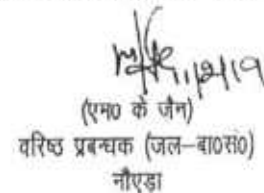 11/2/19
(एम0 के जैन)
वरिष्ठ प्रबन्धक (जल–बा0सं0)
नौएडा